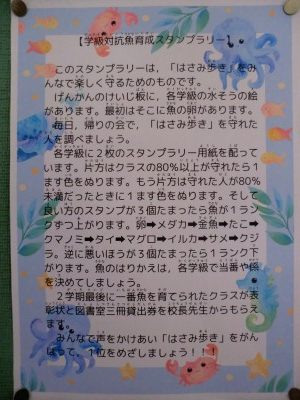 【学級対抗魚育成スタンプラリー】
このスタンプラリーは、「はさみ歩き」をみ
んなで楽しく守るためのものです。
げんかんのけいじ板に、各学級の水そうの絵
があります。最初はそこに魚の卵があります。
毎日、帰りの会で、「はさみ歩き」を守れた
人を調べましょう。
各学級に2枚のスタンプラリー用紙を配って
います。片方はクラスの80%以上が守れたら1
ます色をぬります。もう片方は守れた人が80%
未満だったときに1ます色をぬります。そして
良い方のスタンプが3個たまったら魚が1ラン
クずつ上がります。卵➡メダカ➡金魚➡たこ➡
クマノミ➡タイ➡マグロ➡イルカ➡サメ➡クジ
ラ。逆に悪いほうが3個たまったら1ランク下
がります。魚のはりかえは、各学級で当番や係
を決めてしましょう。
2学期最後に一番魚を育てられたクラスが表
彰状と図書室三冊貸出券を校長先生からもらえ
ます。
みんなで声をかけあい「はさみ歩き」をがん
ばって、1位をめざしましょう!!!